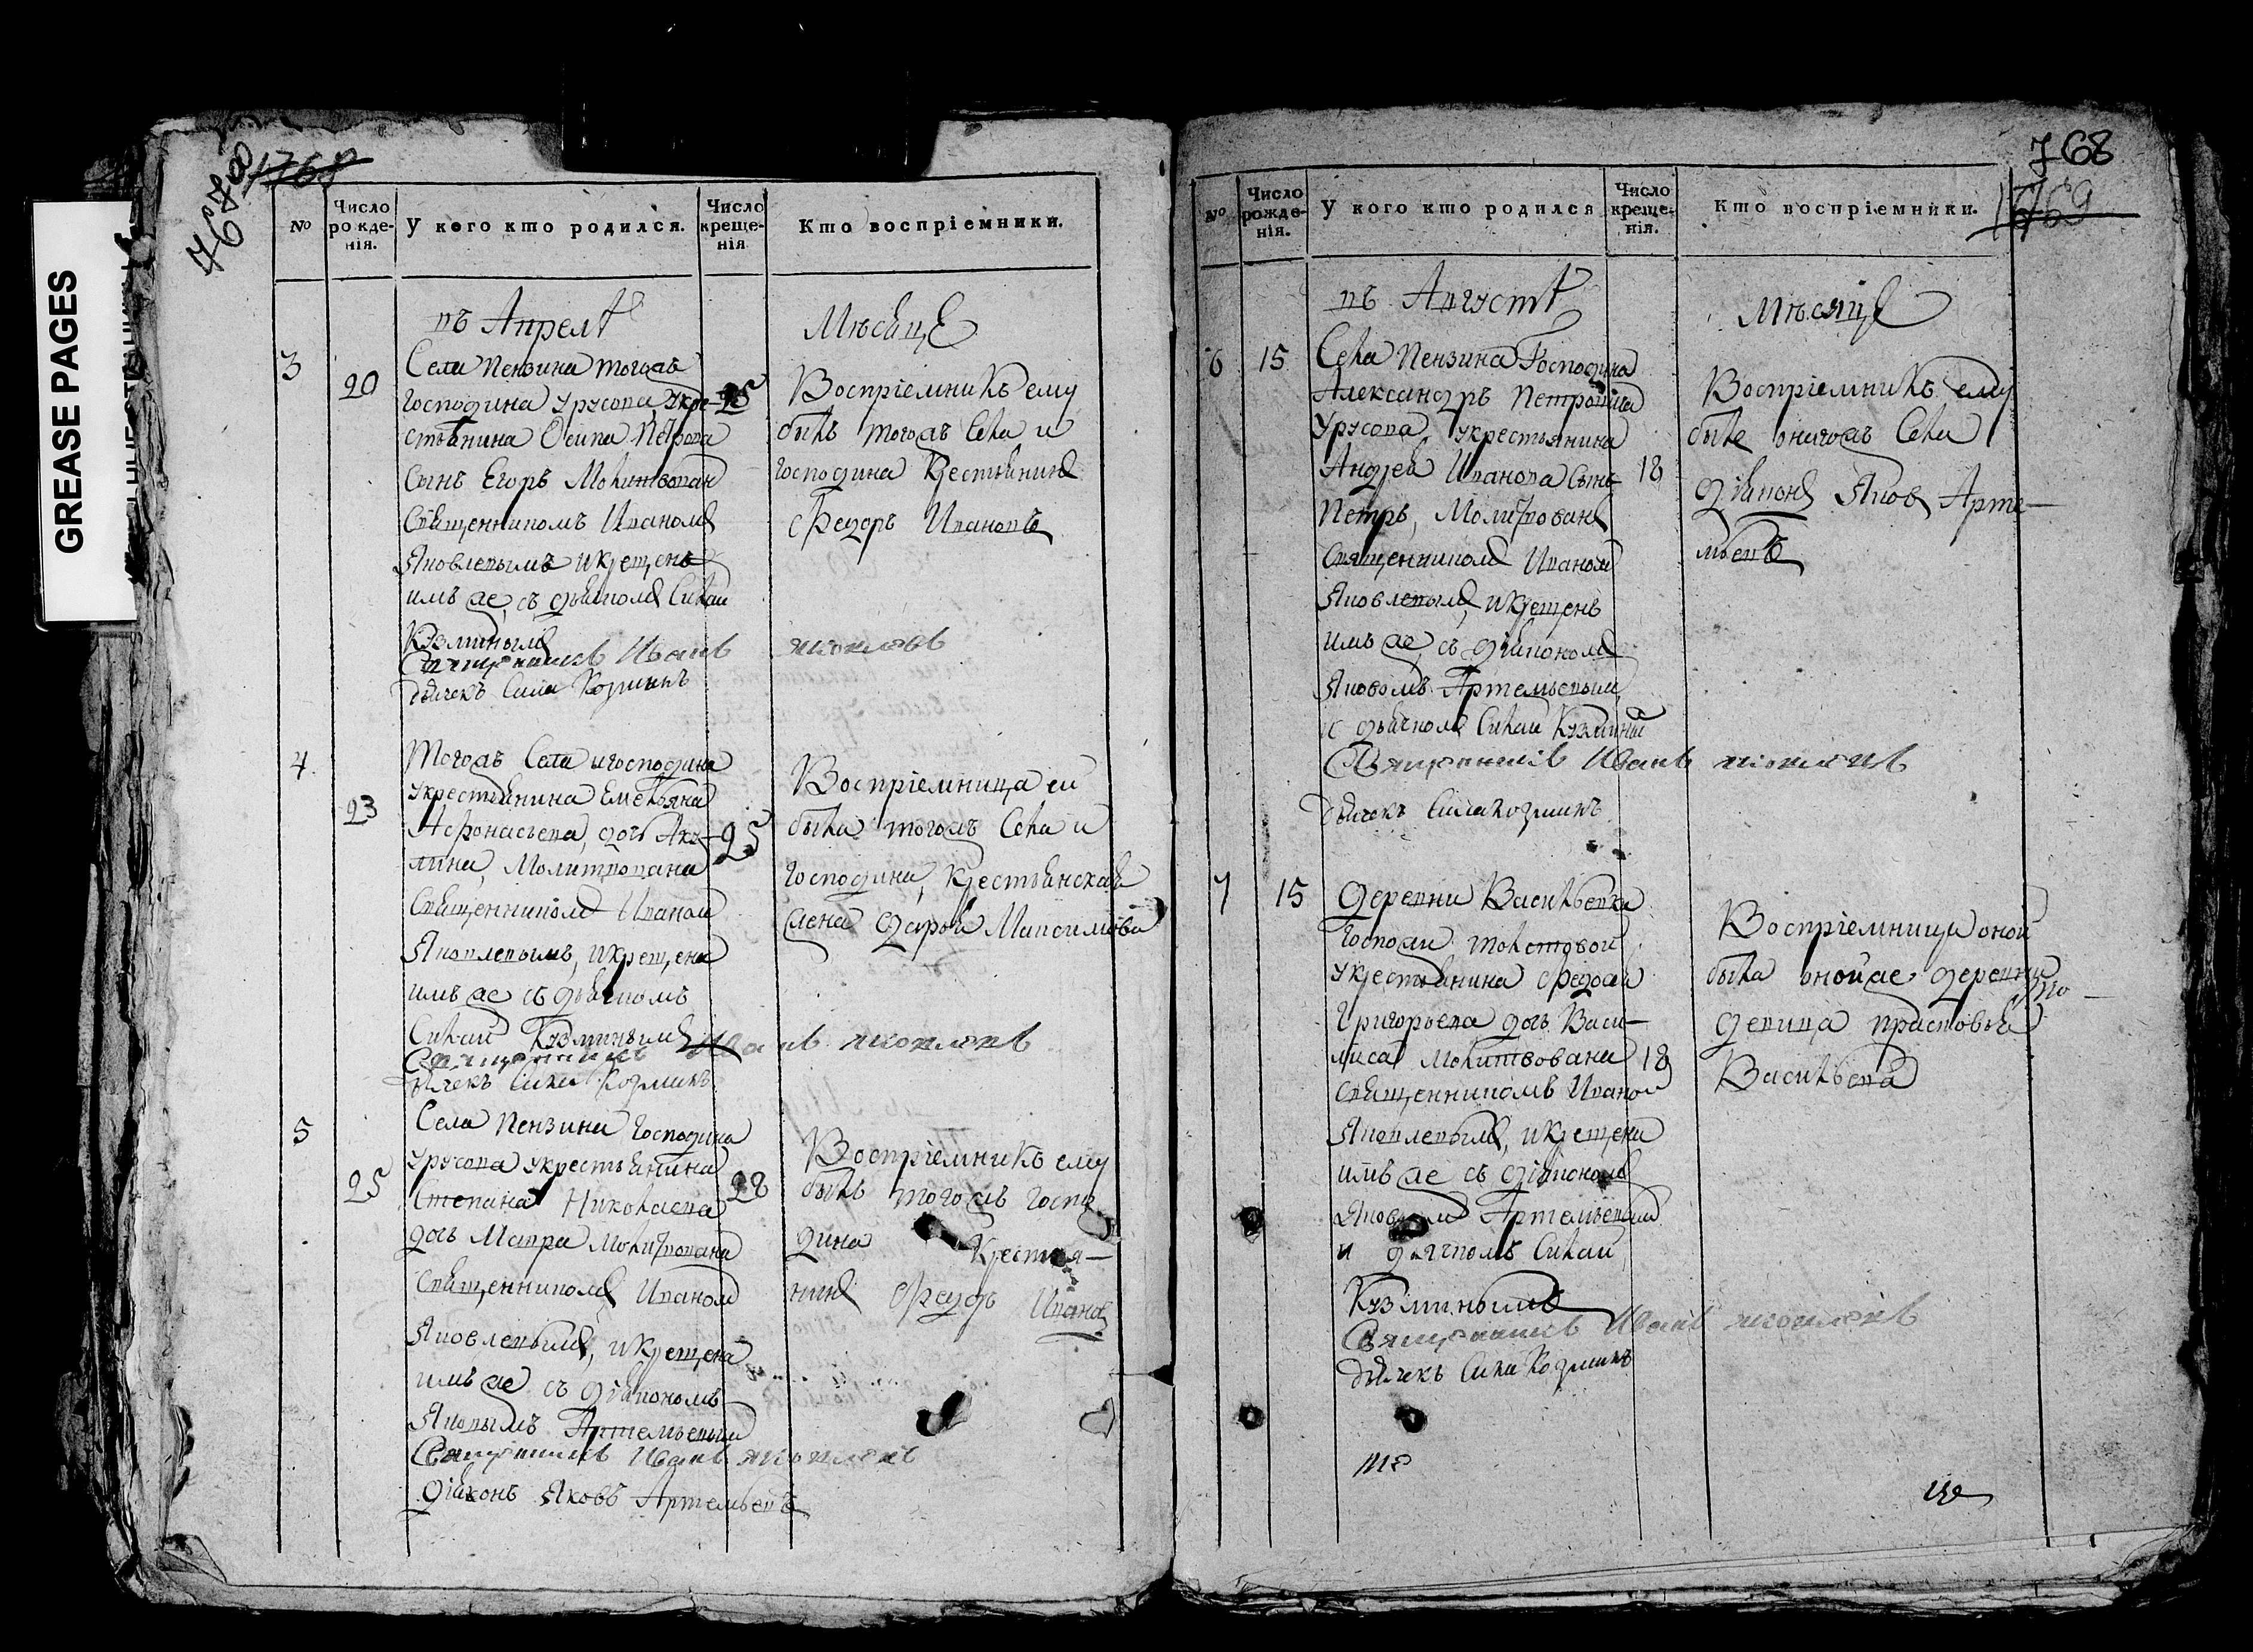 GREASE PAGES
768
1768
№
Число рожденія.
У кого кто родился.
Число крещенія
Кто воспріемники.
въ Апрелѣ
Мѣсяцѣ
3
20
25
Села Пензина тогожъ
господина Урусова, укре-
стьянина Осипа Петрова
сынъ Егоръ Молитвован
священникомъ Иваномъ
Яковлевымъ и крещенъ
имъ же, съ дьячкомъ Силаи
Кузминымъ
Священникъ Иванъ Яковлевъ
Дьячекъ Сила Козминъ
Воспріемникъ ему
былъ тогожъ Села и
господина Крестьянинъ
Федоръ Ивановъ
4
23
25
Тогожъ Села и господина
укрестьянина Емельяна
Афонасьева, дочь Аку-
лина, Молитвована
Священникомъ Иваном
Яковлевымъ, и крещена
имъ же съ дьячкомъ
Силаи Кузминымъ
Священникъ Иванъ Яковлевъ
Дьячекъ Сила Козминъ
Воспріемница еи
была тогожъ Села и
господина, Крестьянская
жена Дарья Максимова
5
25
28
Села Пензина Господина
Урусова укрестьянина
Степана Николаева
дочь Матра Молитвована
Священникомъ Иваном
Яковлевымъ, и крещена
имъ же съ діякономъ
Яковымъ Артемьевым
Священникъ Иванъ Яковлевъ
Діяконъ Яковъ Артемьевъ
Воспріемникъ ему
былъ тогожъ госпо
дина Крестья-
нинъ Федоръ Ивановъ
768
1769
№
Число рожденія.
У кого кто родился
Число крещенія.
Кто воспріемники.
въ Августѣ
Мѣсяцѣ
6
15
18
Села Пензина Господина
Александръ Петровича
Урусова, укрестьянина
Андрея Иванова Сынъ
Петръ, Молитвованъ
Священникомъ Иваном
Яковлевымъ, и крещенъ
имъ же, съ діякономъ
Яковомъ Артемьевым
и дьячкомъ Силаи Кузминым
Священникъ Иванъ Яковлевъ
Дьячекъ Сила Козминъ
Воспріемникъ ему
былъ оногожъ Села
діяконъ Яков Арте-
мьевъ
7
15
18
Деревни Васильевка
Госпожи Толстовой
укрестьянина Федота
Григорьева дочь Васи-
лиса Молитвована
Священникомъ Иваном
Яковлевымъ, и крещена
имъ же съ діякономъ
Яковомъ Артемьевым
и дьячкомъ Силаи
Кузминымъ
Священникъ Иванъ Яковлевъ
Дьячекъ Сила Козминъ
Воспріемница оной
была онойже деревни
девица Прасковья
Васильева